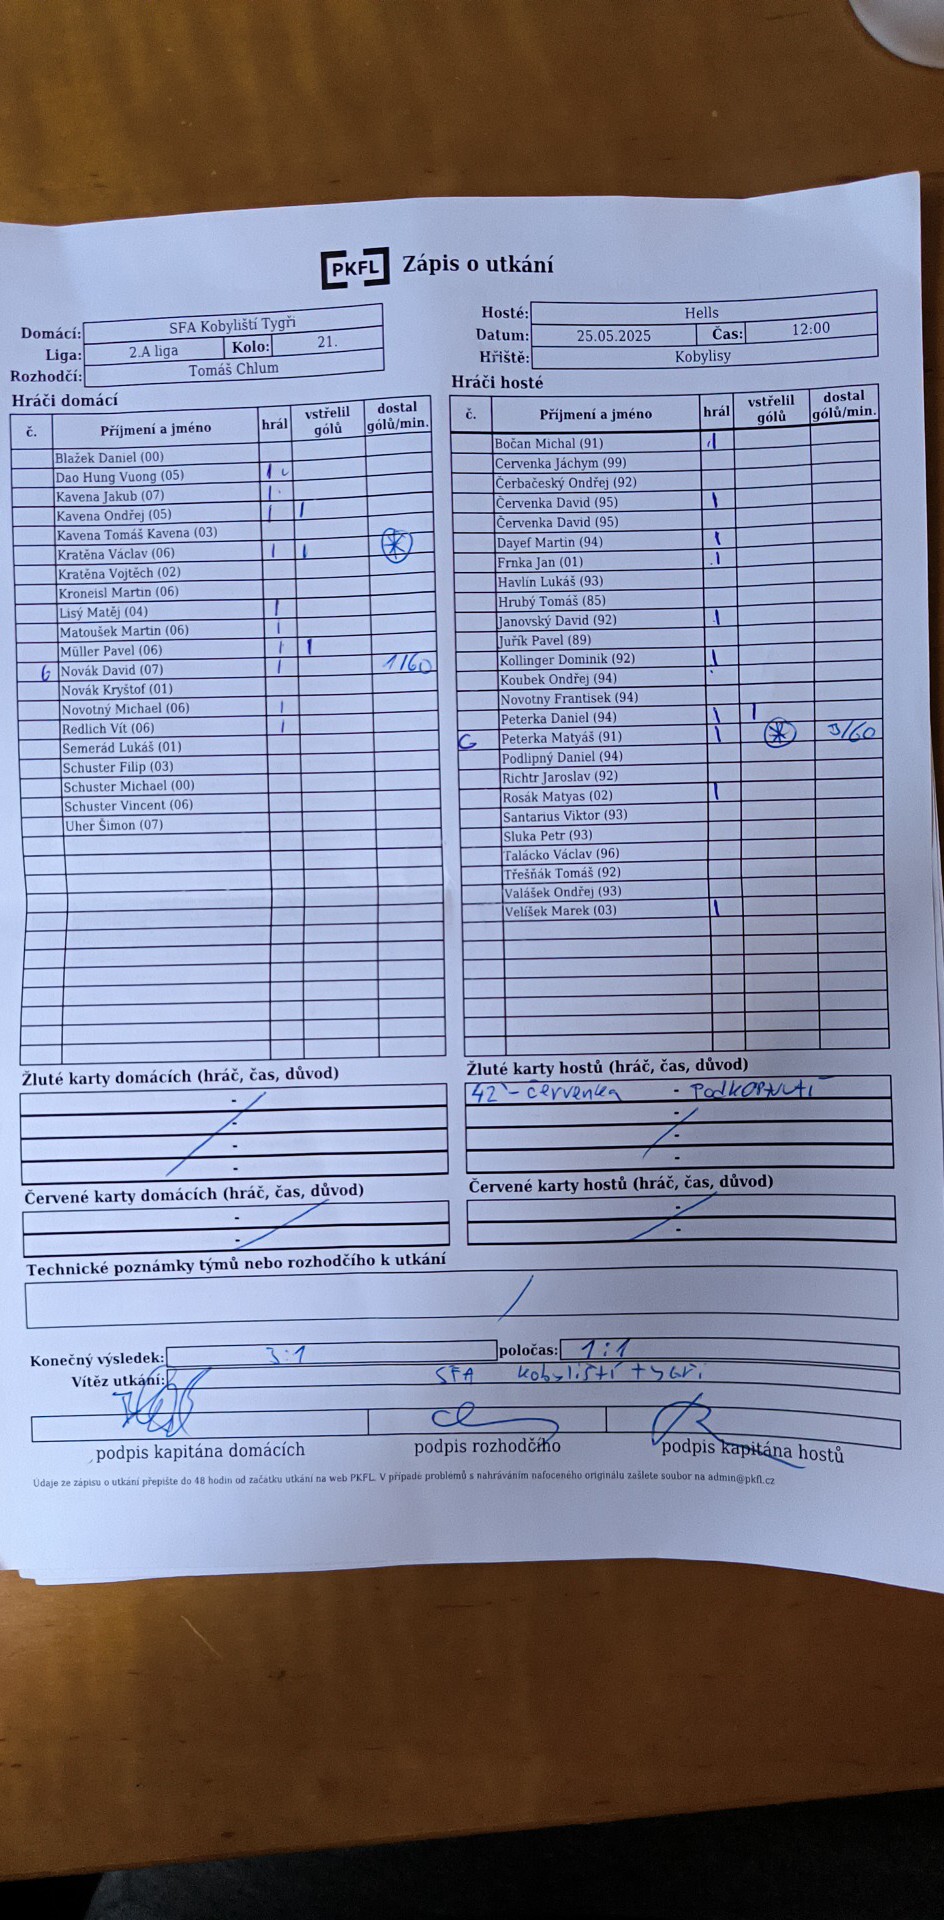 PKFL Zápis o utkání
Domácí: SFA Kobyliští Tygři
Liga: 2.A liga Kolo: 21.
Rozhodčí: Tomáš Chlum
Hosté: Hells
Datum: 25.05.2025 Čas: 12:00
Hřiště: Kobylisy
Hráči domácí
č. Příjmení a jméno hrál vstřelil gólů dostal gólů/min.
Blažek Daniel (00)
Dao Hung Vuong (05) I
Kavena Jakub (07) I
Kavena Ondřej (05) I I
Kavena Tomáš Kavena (03)
Kratěna Václav (06) I I
Kratěna Vojtěch (02)
Kroneisl Martin (06)
Lisý Matěj (04) I
Matoušek Martin (06) I
Müller Pavel (06) I I
G Novák David (07) I 1/60
Novák Kryštof (01)
Novotný Michael (06) I
Redlich Vít (06) I
Semerád Lukáš (01)
Schuster Filip (03)
Schuster Michael (00)
Schuster Vincent (06)
Uher Šimon (07)
Hráči hosté
č. Příjmení a jméno hrál vstřelil gólů dostal gólů/min.
Bočan Michal (91) I
Červenka Jáchym (99)
Čerbačeský Ondřej (92)
Červenka David (95) I
Červenka David (95)
Dayef Martin (94) I
Frnka Jan (01) I
Havlín Lukáš (93)
Hrubý Tomáš (85)
Janovský David (92) I
Juřík Pavel (89)
Kollinger Dominik (92) I
Koubek Ondřej (94)
Novotny Frantisek (94)
Peterka Daniel (94) I I
G Peterka Matyáš (91) I 3/60
Podlipný Daniel (94)
Richtr Jaroslav (92)
Rosák Matyas (02) I
Santarius Viktor (93)
Sluka Petr (93)
Talácko Václav (96)
Třešňák Tomáš (92)
Valášek Ondřej (93)
Velíšek Marek (03) I
Žluté karty domácích (hráč, čas, důvod)
-
-
-
-
Žluté karty hostů (hráč, čas, důvod)
42' - červenka - PODKOPNUTÍ
-
-
-
Červené karty domácích (hráč, čas, důvod)
-
-
Červené karty hostů (hráč, čas, důvod)
-
-
Technické poznámky týmů nebo rozhodčího k utkání
Konečný výsledek: 3:1 poločas: 1:1
Vítěz utkání: SFA kobylištÍ tygři
podpis kapitána domácích podpis rozhodčího podpis kapitána hostů
Údaje ze zápisu o utkání přepište do 48 hodin od začátku utkání na web PKFL. V případe problémů s nahráváním nafoceného originálu zašlete soubor na admin@pkfl.cz